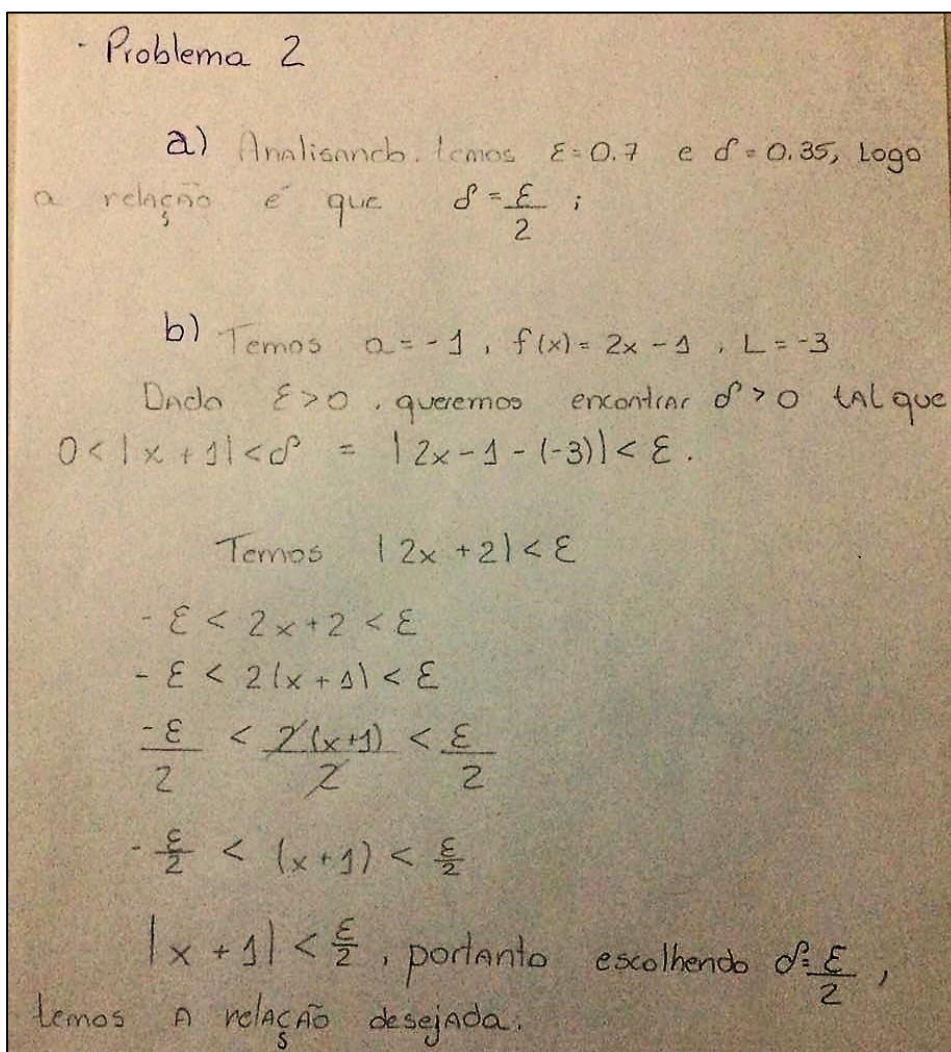 - Problema 2
a) Analisando. temos ε=0.7 e δ=0.35, Logo
a relação é que δ = ε/2 ;
b) Temos a = -1, f(x) = 2x - 1, L = -3
Dado ε > 0, queremos encontrar δ > 0 tal que
0 < |x + 1| < δ = |2x - 1 - (-3)| < ε.
Temos |2x + 2| < ε
- ε < 2x + 2 < ε
- ε < 2(x + 1) < ε
-ε/2 < 2(x+1)/2 < ε/2
- ε/2 < (x + 1) < ε/2
|x + 1| < ε/2, portanto escolhendo δ = ε/2,
temos a relação desejada.